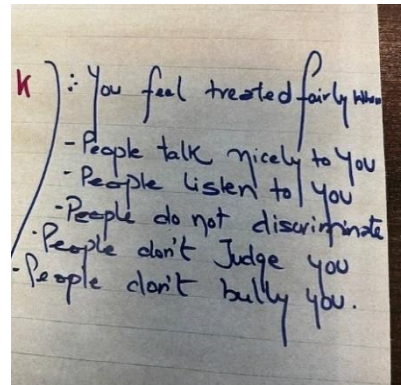 k ) : You feel treated fairly when
- People talk nicely to you
- People listen to you
- People do not discriminate
- People don't Judge you
- People don't bully you.